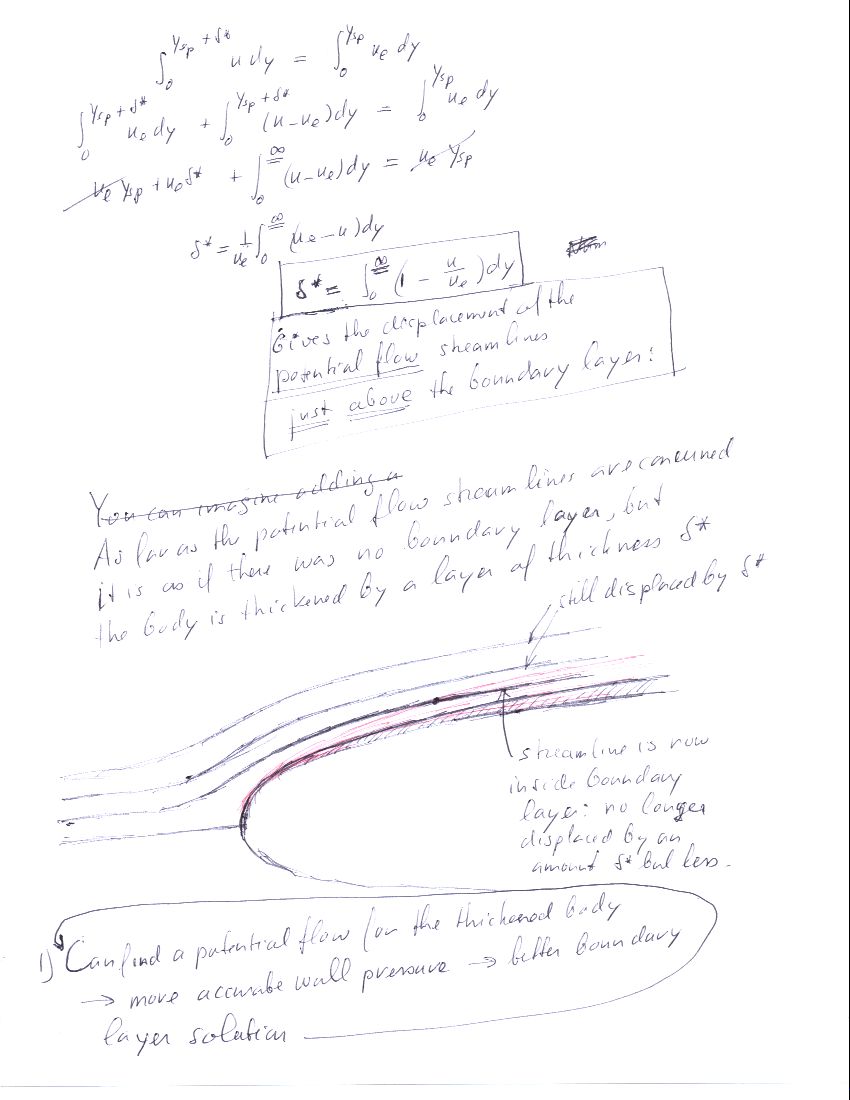 ∫₀^{y_sp + δ*} u dy = ∫₀^{y_sp} u_e dy
∫₀^{y_sp + δ*} u_e dy + ∫₀^{y_sp + δ*} (u − u_e) dy = ∫₀^{y_sp} u_e dy
u_e y_sp + u_e δ* + ∫₀^∞ (u − u_e) dy = u_e y_sp
δ* = 1/u_e ∫₀^∞ (u_e − u) dy
δ* = ∫₀^∞ (1 − u/u_e) dy
Gives the displacement of the
potential flow streamlines
just above the boundary layer:
You can imagine adding a
As far as the potential flow streamlines are concerned
it is as if there was no boundary layer, but
the body is thickened by a layer of thickness δ*
still displaced by δ*
streamline is now
inside boundary
layer: no longer
displaced by an
amount δ* but less.
1) Can find a potential flow for the thickened body
→ more accurate wall pressure → better boundary
layer solution